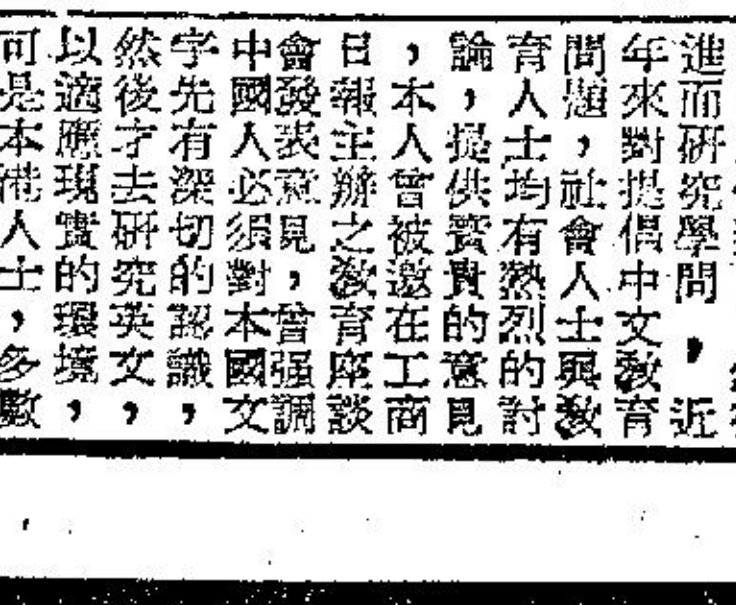 進而研究學問，近
年來對提倡中文教育
問題，社會人士與教
育人士均有熱烈的討
論，提供寶貴的意見
，本人曾被邀在工商
日報主辦之教育座談
會發表意見，曾强調
中國人必須對本國文
字先有深切的認識，
然後才去研究英文，
以適應現實的環境，
可是本港人士，多數